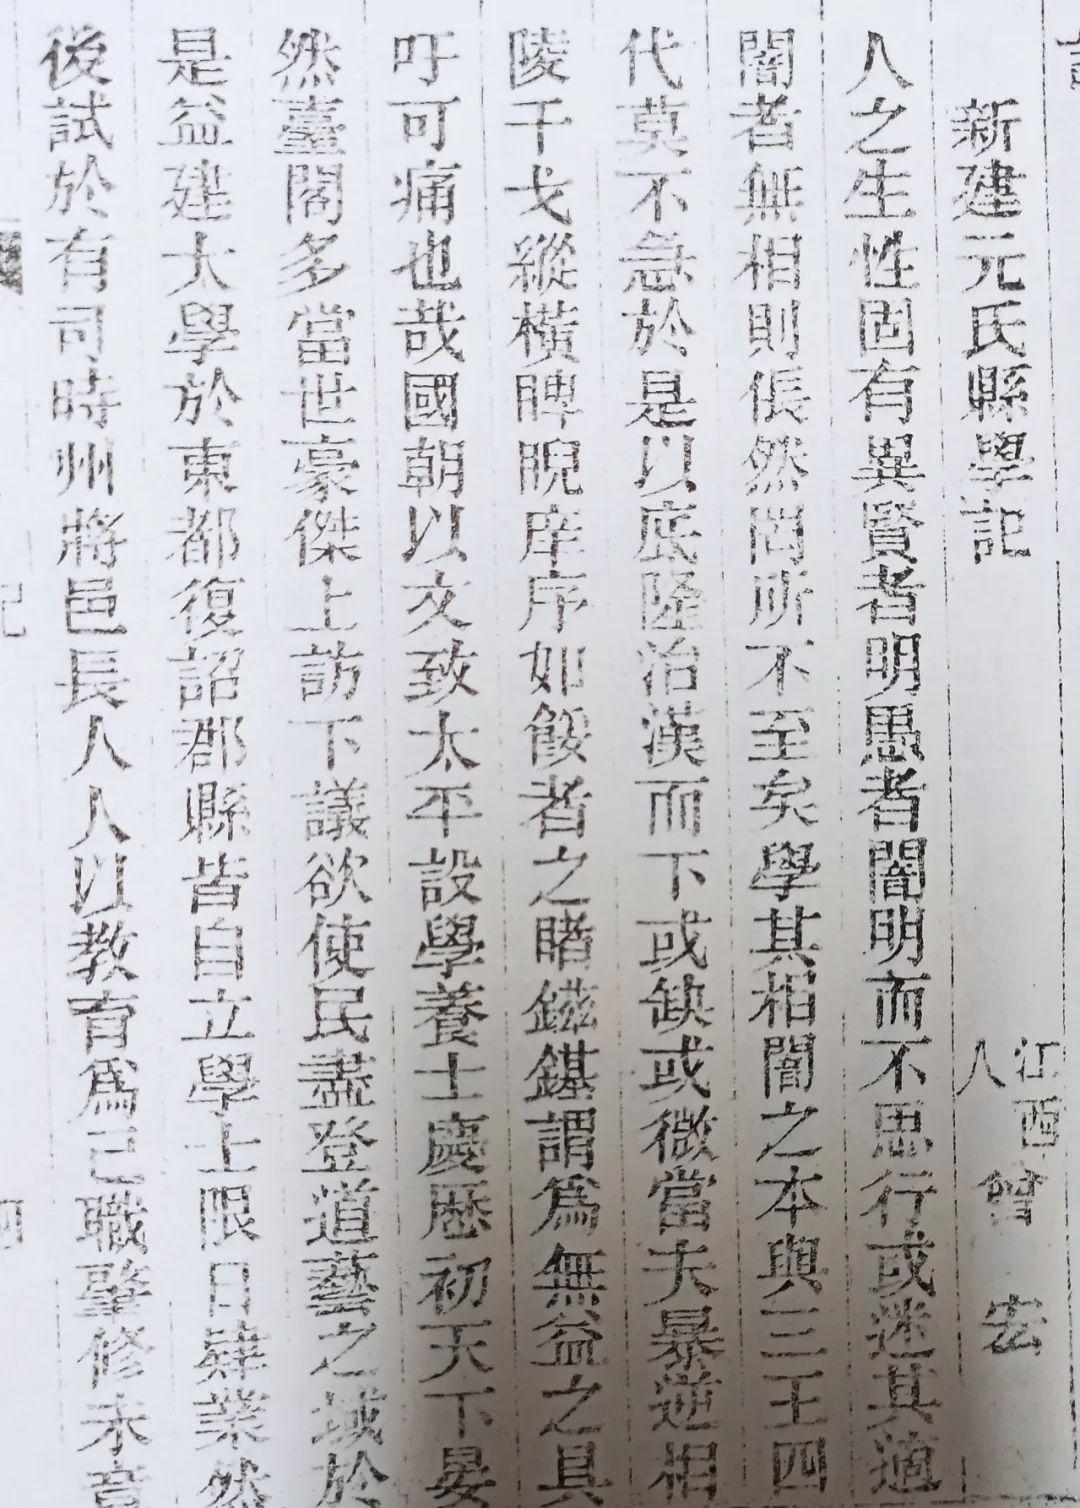 新建元氏縣學記 江西人 曾
人之生性固有異賢者明愚者闇明而不思行或迷其適
闇者無相則倀然罔所不至矣學其相闇之本與三王四
代莫不急於是以底隆治漢而下或缺或微當夫暴逆相
陵干戈縱橫睥睨庠序如餒者之睹鎡錤謂爲無益之具
吁可痛也哉國朝以文致太平設學養士慶歷初天下晏
然臺閣多當世豪傑上訪下議欲使民盡登道藝之域於
是益建太學於東都復詔郡縣皆自立學士限日肄業然
後試於有司時州將邑長人人以教育爲己職肇修未